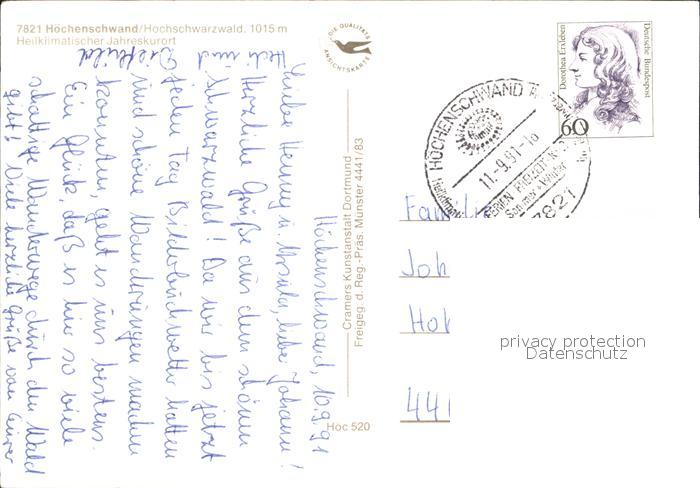 7821 Höchenschwand/Hochschwarzwald. 1015 m
Heilklimatischer Jahreskurort
DIE QUALITÄTS
ANSICHTSKARTE
Höchenschwand, 10.9.91
Liebe Henny u. Ursula, liebe Johann!
Herzliche Grüße aus dem schönen
Schwarzwald! Da wir bis jetzt
jeden Tag Bilderbuchwetter hatten
und schöne Wanderungen machen
konnten, geht es uns bestens.
Ein Glück, daß es hier so viele
schattige Wanderwege durch den Wald
gibt! Viele herzliche Grüße von Eurer
und
Cramers Kunstanstalt Dortmund
Freigeg. d. Reg.-Präs. Münster 4441/83
Höc 520
Dorothea Erxleben
Deutsche Bundespost
60
HÖCHENSCHWAND
11.-9.91-10
FERIEN
Sommer + Winter
7821
Fam
Joh
Hol
441
privacy protection
Datenschutz